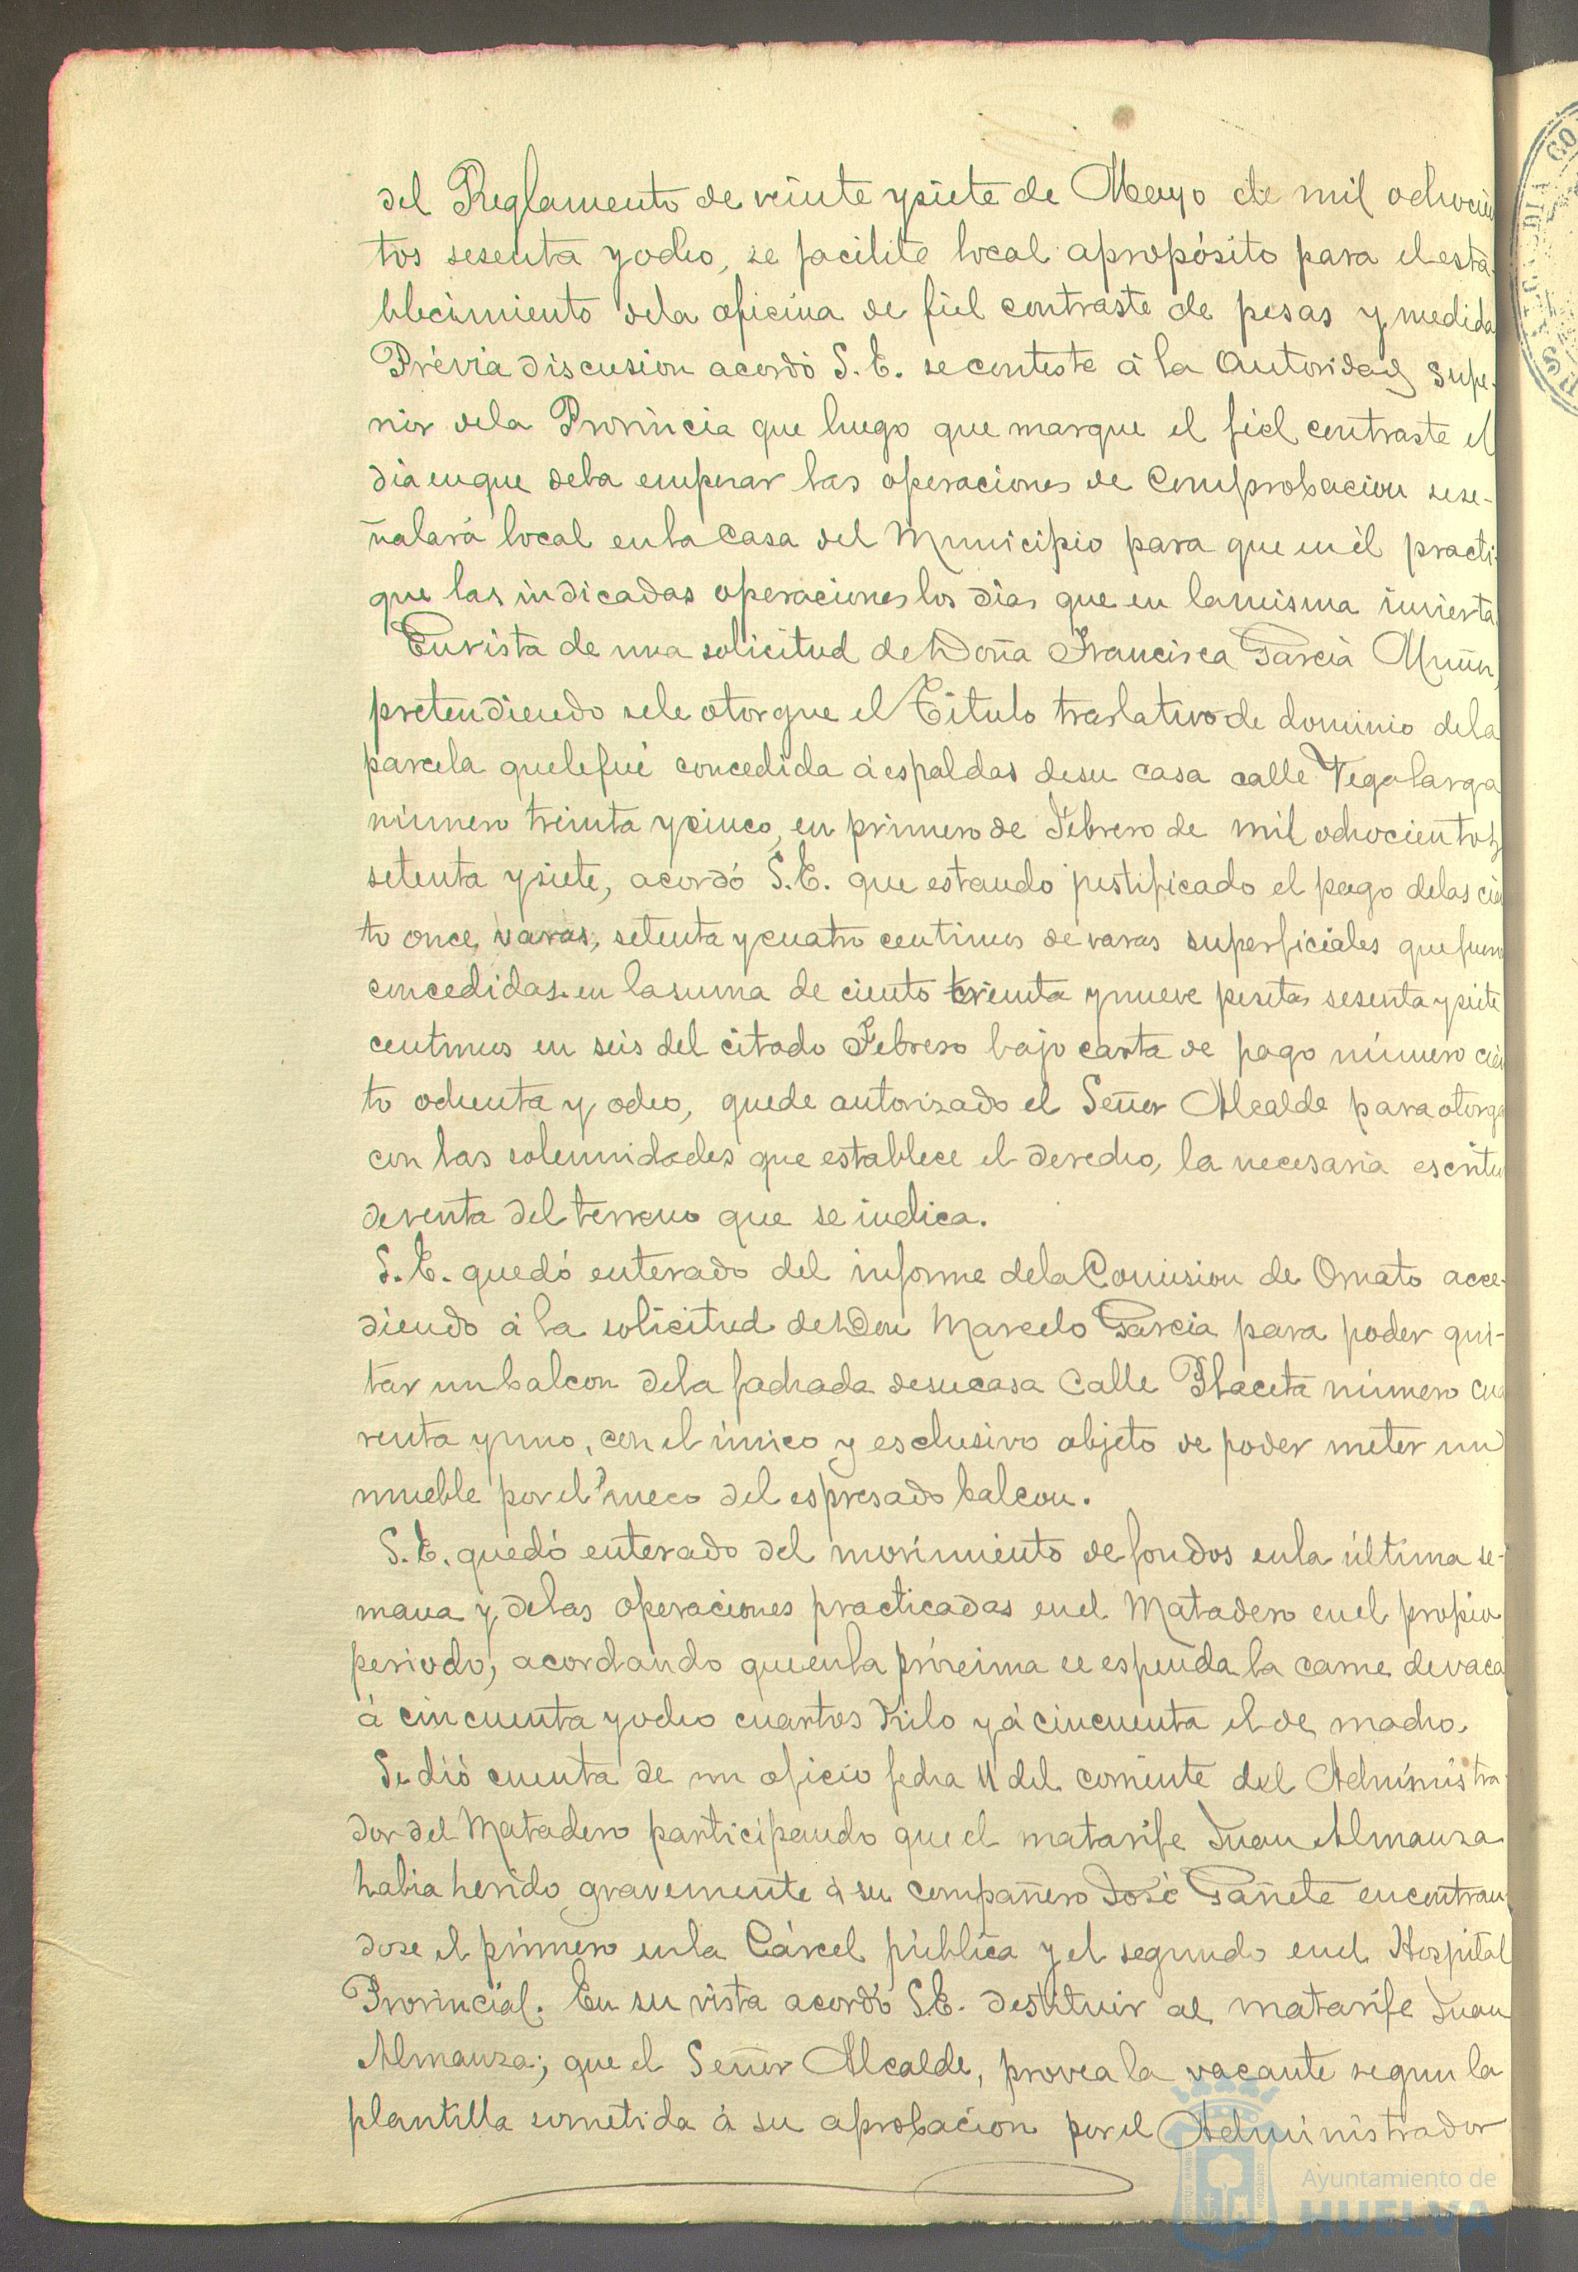 del Reglamento de veinte y siete de Mayo de mil ochocien
tos sesenta y ocho, se facilite local apropósito para el esta-
blecimiento de la oficina de fiel contraste de pesas y medida
Prévia discusion acordó S. E. se conteste á la Autoridad supe-
rior de la Provincia que luego que marque el fiel contraste el
dia en que deba empezar las operaciones de Comprobacion se se-
ñalará local en la Casa del Municipio para que en él practi-
que las indicadas operaciones los dias que en la misma invierta
En vista de una solicitud de Doña Francisca Garcia Muñoz,
pretendiendo se le otorgue el Título traslativo de dominio de la
parcela que le fué concedida á espaldas de su casa calle Vegalarga
número treinta y cinco, en primero de Febrero de mil ochocientos
setenta y siete, acordó S. E. que estando justificado el pago de las cien
to once varas, setenta y cuatro centimos de varas superficiales que fueron
concedidas en la suma de ciento treinta y nueve pesetas sesenta y siete
centimos en seis del citado Febrero bajo carta de pago número cien
to ochenta y ocho, quede autorizado el Señor Alcalde para otorga
con las solemnidades que establece el derecho, la necesaria escritu
de venta del terreno que se indica.
S. E. quedó enterado del informe de la Comision de Ornato acce-
diendo á la solicitud de Don Marcelo Garcia para poder qui-
tar un balcon de la fachada de su casa Calle Placeta número cua
renta y uno, con el único y esclusivo objeto de poder meter un
mueble por el hueco del espresado balcon.
S. E. quedó enterado del movimiento de fondos en la última se-
mana y de las operaciones practicadas en el Matadero en el propio
periodo, acordando que en la próxima se espenda la carne de vaca
á cincuenta y ocho cuartos Kilo y á cincuenta el de macho.
Se dió cuenta de un oficio fecha 11 del corriente del Administra-
dor del Matadero participando que el matarife Juan Almanza
habia herido gravemente á su compañero José Gañete encontran-
dose el primero en la Cárcel pública y el segundo en el Hospital
Provincial. En su vista acordó S. E. destituir al matarife Juan
Almanza; que el Señor Alcalde, provea la vacante segun la
plantilla sometida á su aprobacion por el Administrador
Ayuntamiento de
HUELVA